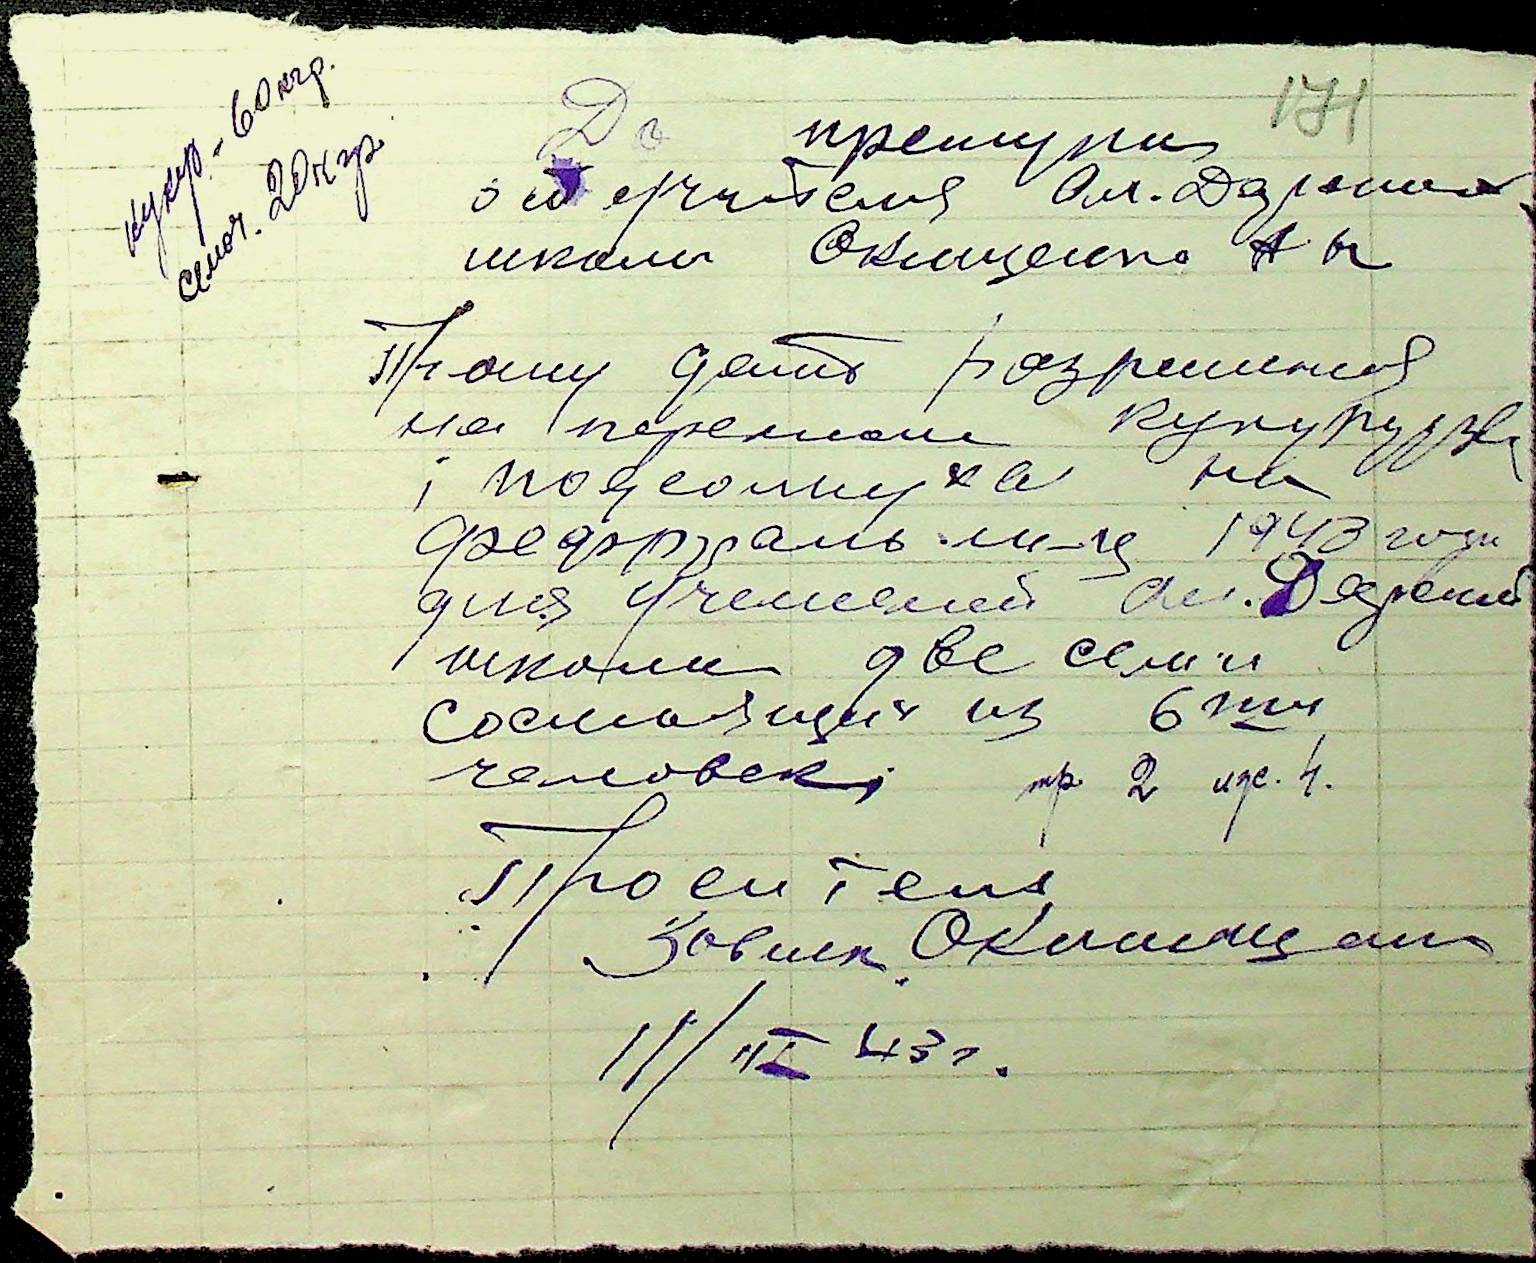 кукур. - 60 кгр.
семоч. 20 кгр.
171
До премупи
от учителя Ал.
школи Окищенко А
Прошу дать разришения
на перемол кукурузи
і подсолнуха на
февраль м-ц 1943 года
для учителей Ал.
школи две семи
состоящих из 6 ти
человек; тр 2 ижс. 4.
Проситель
Завшк. Окищенко
11/III 43 г.